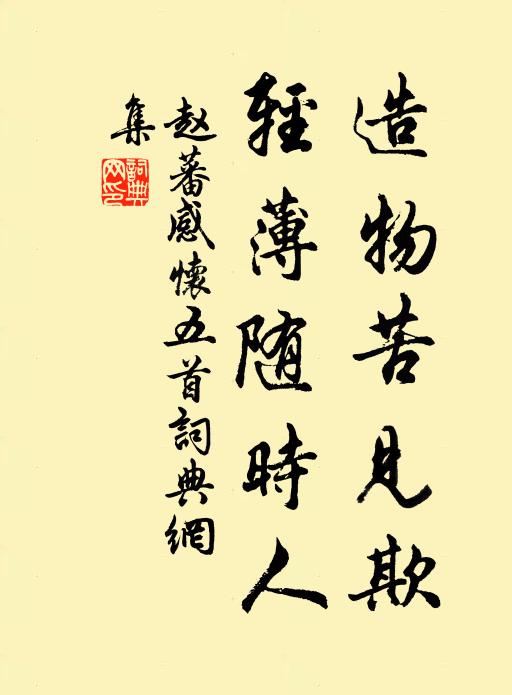 造物苦见欺
輕薄随時人
赵蕃感懷五首詞典網
集
詞典網印